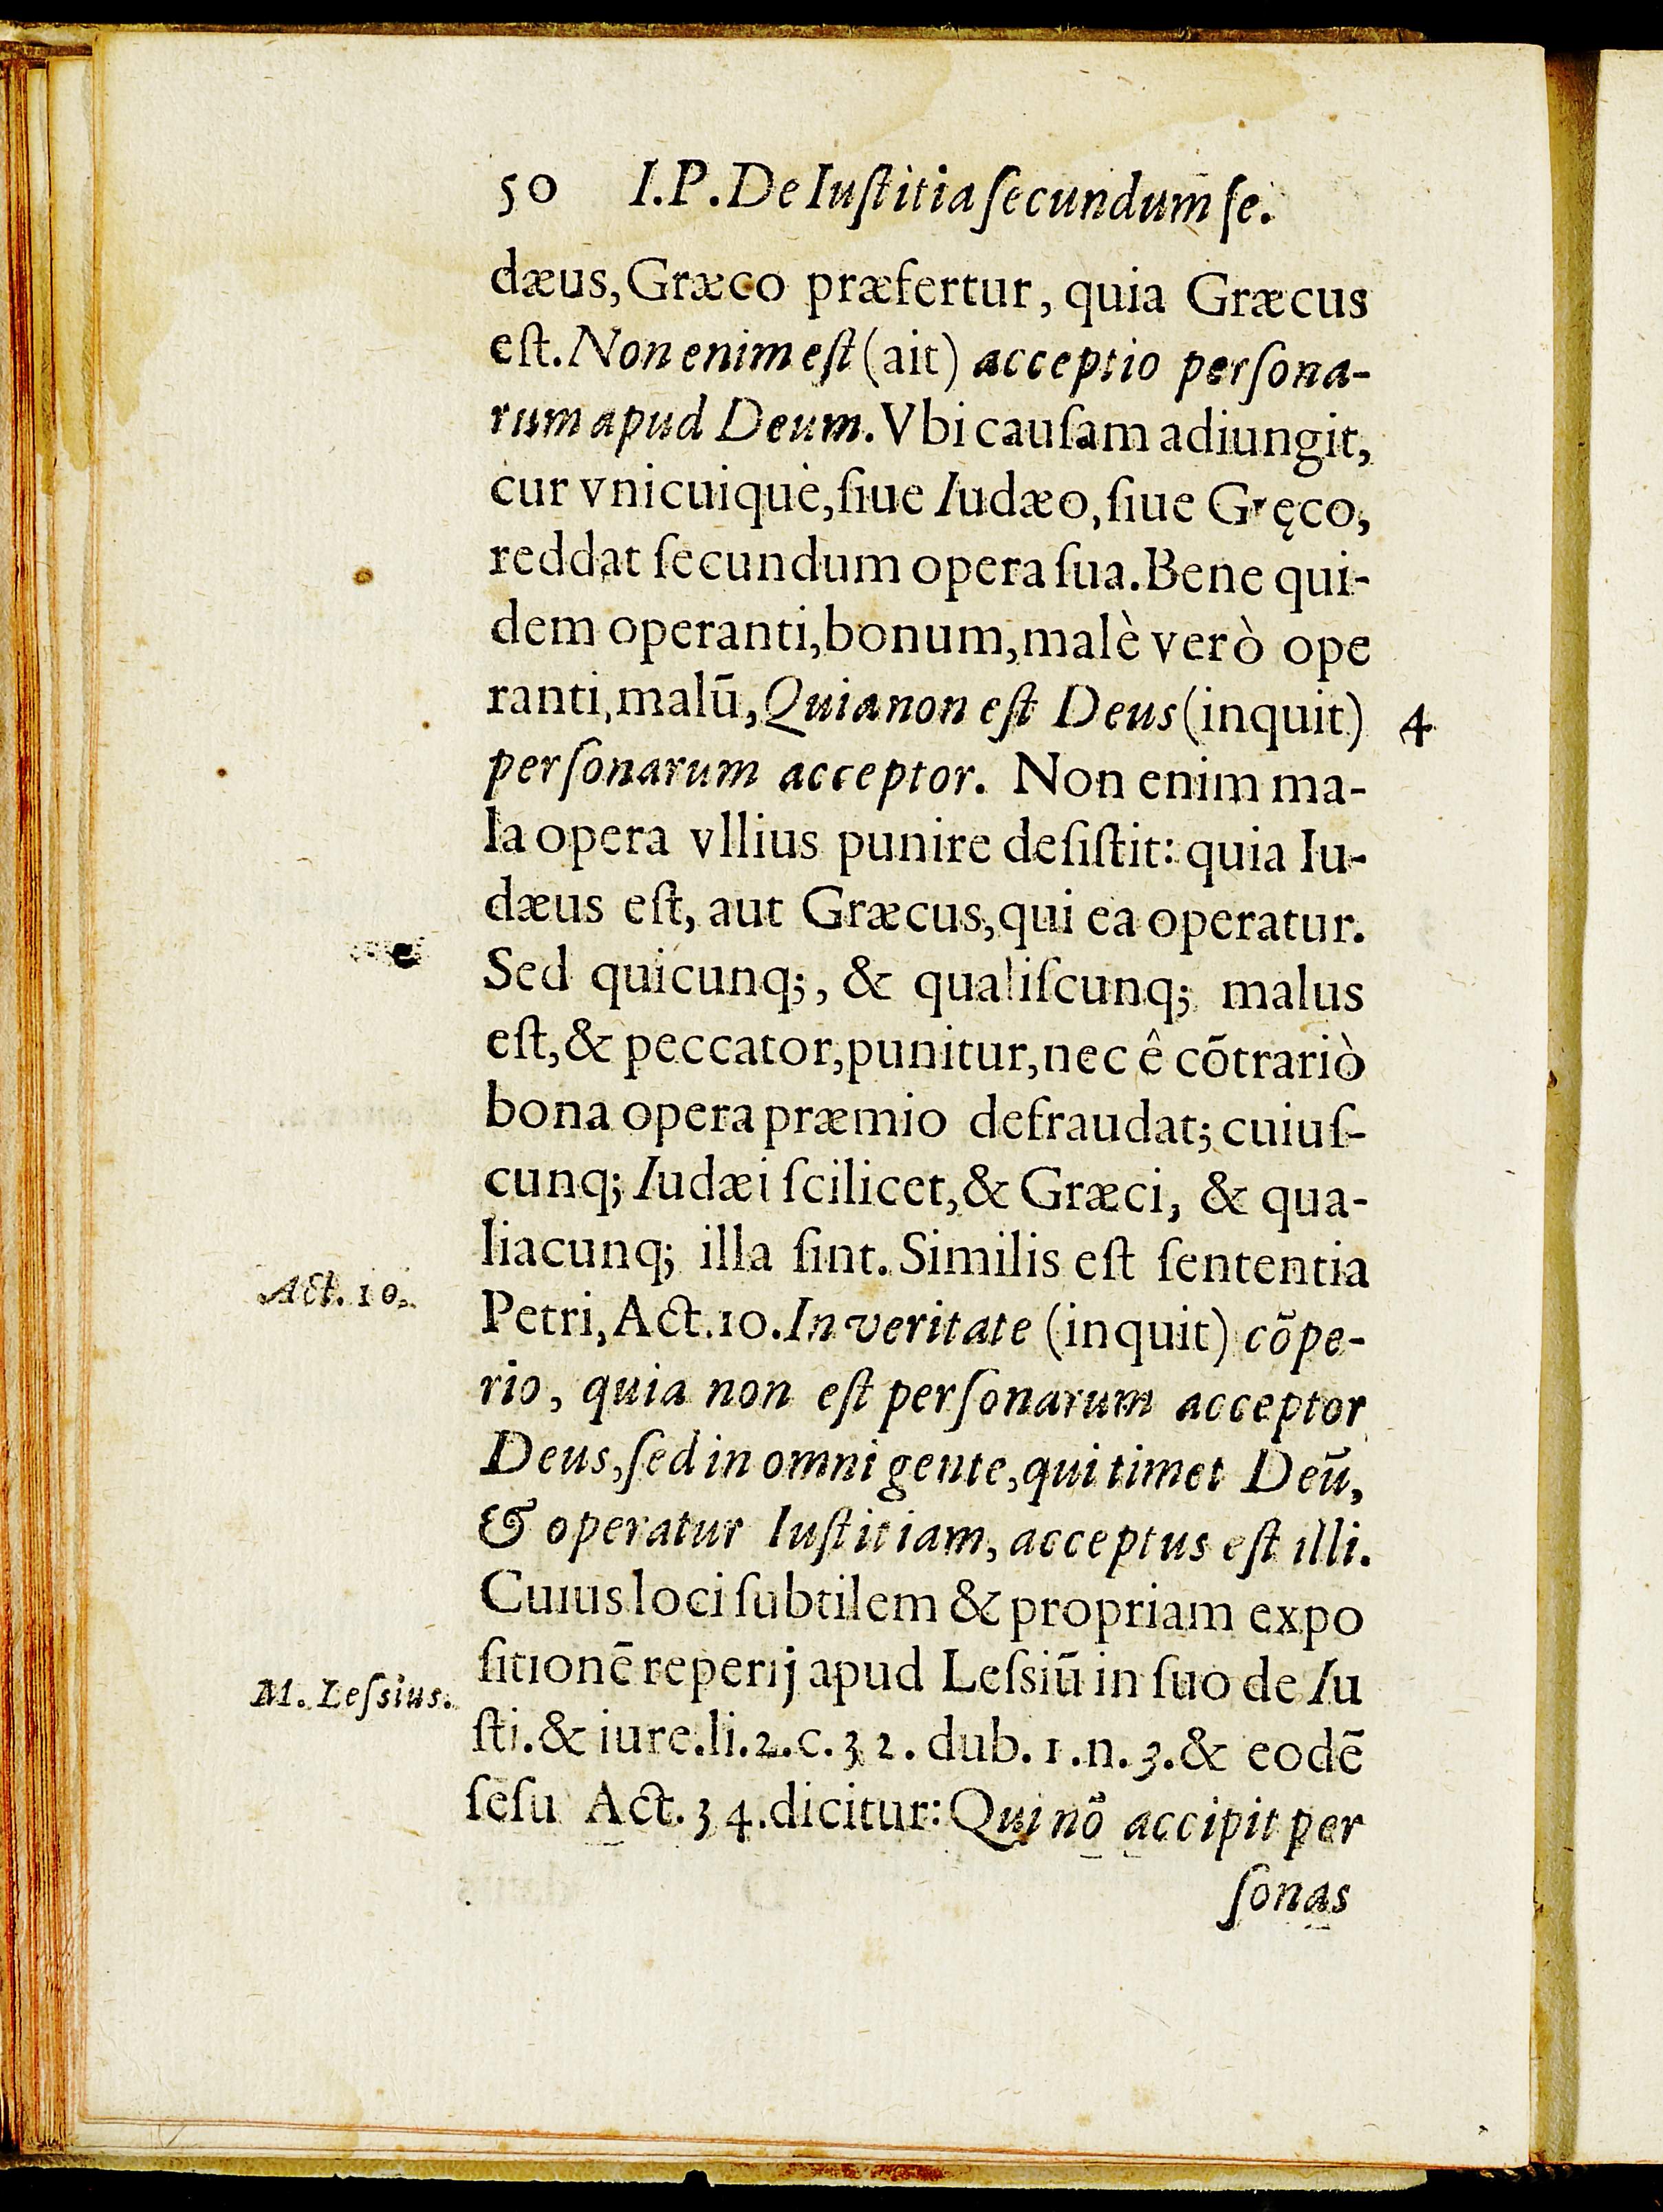 50 I.P. De Iuſtitia ſecundum ſe.
dæus, Græco præfertur, quia Græcus
eſt. Non enim eſt (ait) acceptio perſona-
rum apud Deum. Vbi cauſam adiungit,
cur vnicuique, ſiue Iudæo, ſiue Gręco,
reddat ſecundum opera ſua. Bene qui-
dem operanti, bonum, malè verò ope
ranti, malū, Quia non eſt Deus (inquit) 4
perſonarum acceptor. Non enim ma-
la opera vllius punire deſiſtit: quia Iu-
dæus eſt, aut Græcus, qui ea operatur.
Sed quicunq;, & qualiſcunq; malus
eſt, & peccator, punitur, nec ê cōtrariò
bona opera præmio defraudat; cuiuſ-
cunq; Iudæi ſcilicet, & Græci, & qua-
liacunq; illa ſint. Similis eſt ſententia
Act. 10.
Petri, Act. 10. In veritate (inquit) cōpe-
rio, quia non eſt perſonarum acceptor
Deus, ſed in omni gente, qui timet Deū,
& operatur Iuſtitiam, acceptus eſt illi.
Cuius loci ſubtilem & propriam expo
ſitionē reperij apud Leſsiū in ſuo de Iu
M. Leſsius.
ſti. & iure. li. 2. c. 32. dub. 1. n. 3. & eodē
ſēſu Act. 34. dicitur: Qui nō accipit per
ſonas